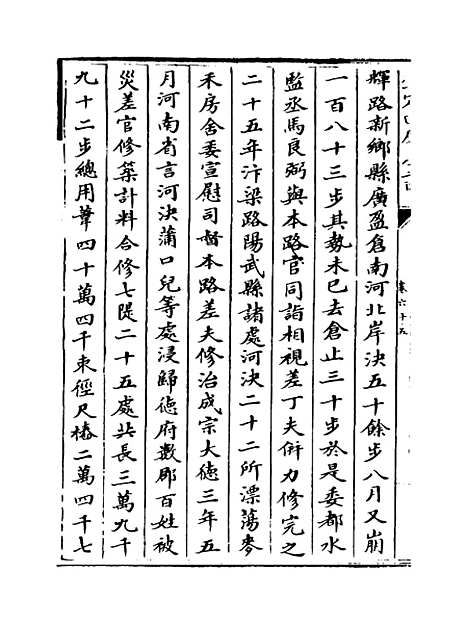 輝路新鄉縣廣盈倉南河北岸決五十餘步八月又崩
一百八十三步其勢未已去倉止三十步於是委都水
監丞馬良弼與本路官同詣相視差丁夫併力修完之
二十五年汴梁路陽武縣諸處河決二十二所漂蕩麥
禾房舍委宣慰司督本路差夫修治成宗大德三年五
月河南省言河決蒲口兒等處浸歸德府數郡百姓被
災差官修築計料合修七隄二十五處共長三萬九千
九十二步總用葦四十萬四千束徑尺樁二萬四千七
卷六十五